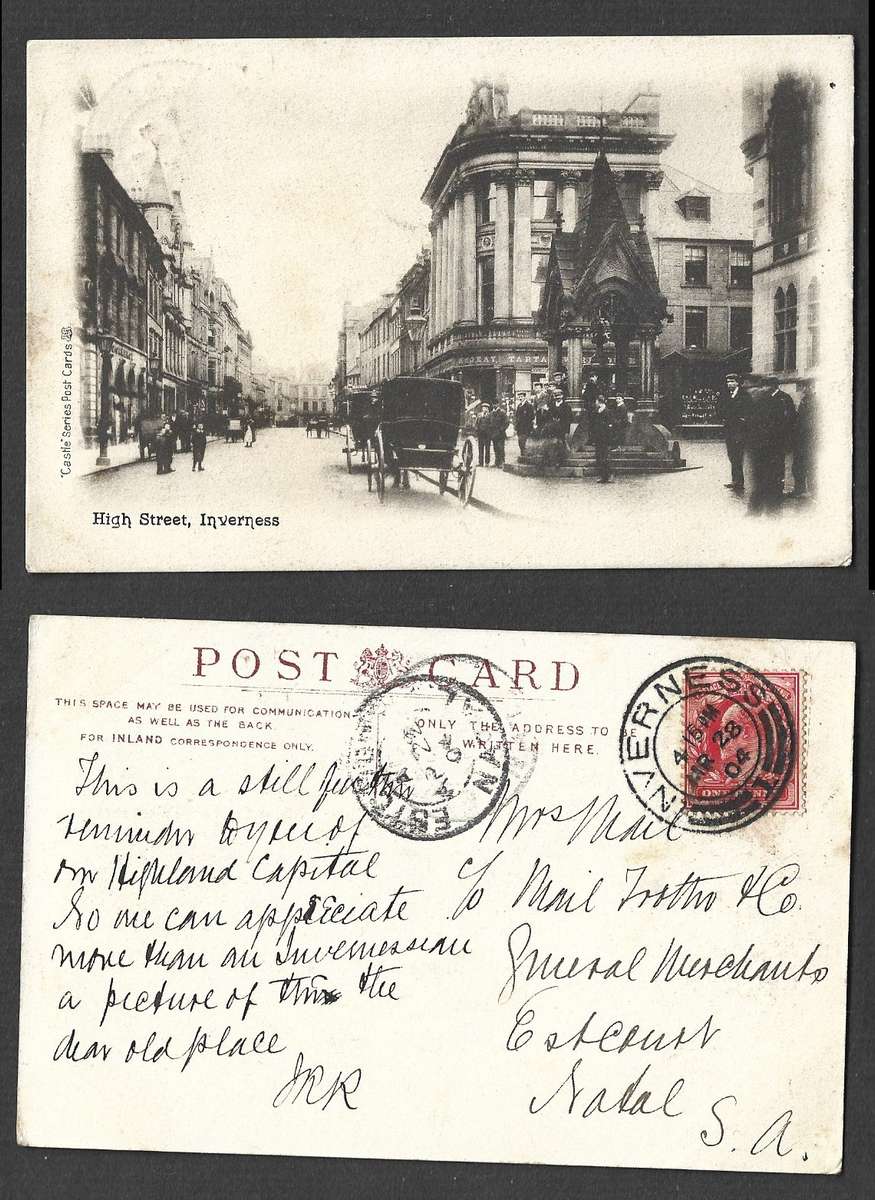 "Castle" Series Post Cards
TARTAN
High Street, Inverness
POST CARD
THIS SPACE MAY BE USED FOR COMMUNICATION
AS WELL AS THE BACK.
FOR INLAND CORRESPONDENCE ONLY.
ONLY THE ADDRESS TO BE
WRITTEN HERE.
INVERNESS
4.15 PM
AP 28
04
ONE PENNY
ESTCOURT
NATAL
This is a still further
reminder to you of
our Highland Capital
No one can appreciate
more than an Invernessian
a picture of the
dear old place
JRR
Mrs Mail
c/o Mail &Co.
General Merchants
Estcourt
Natal
S.A.